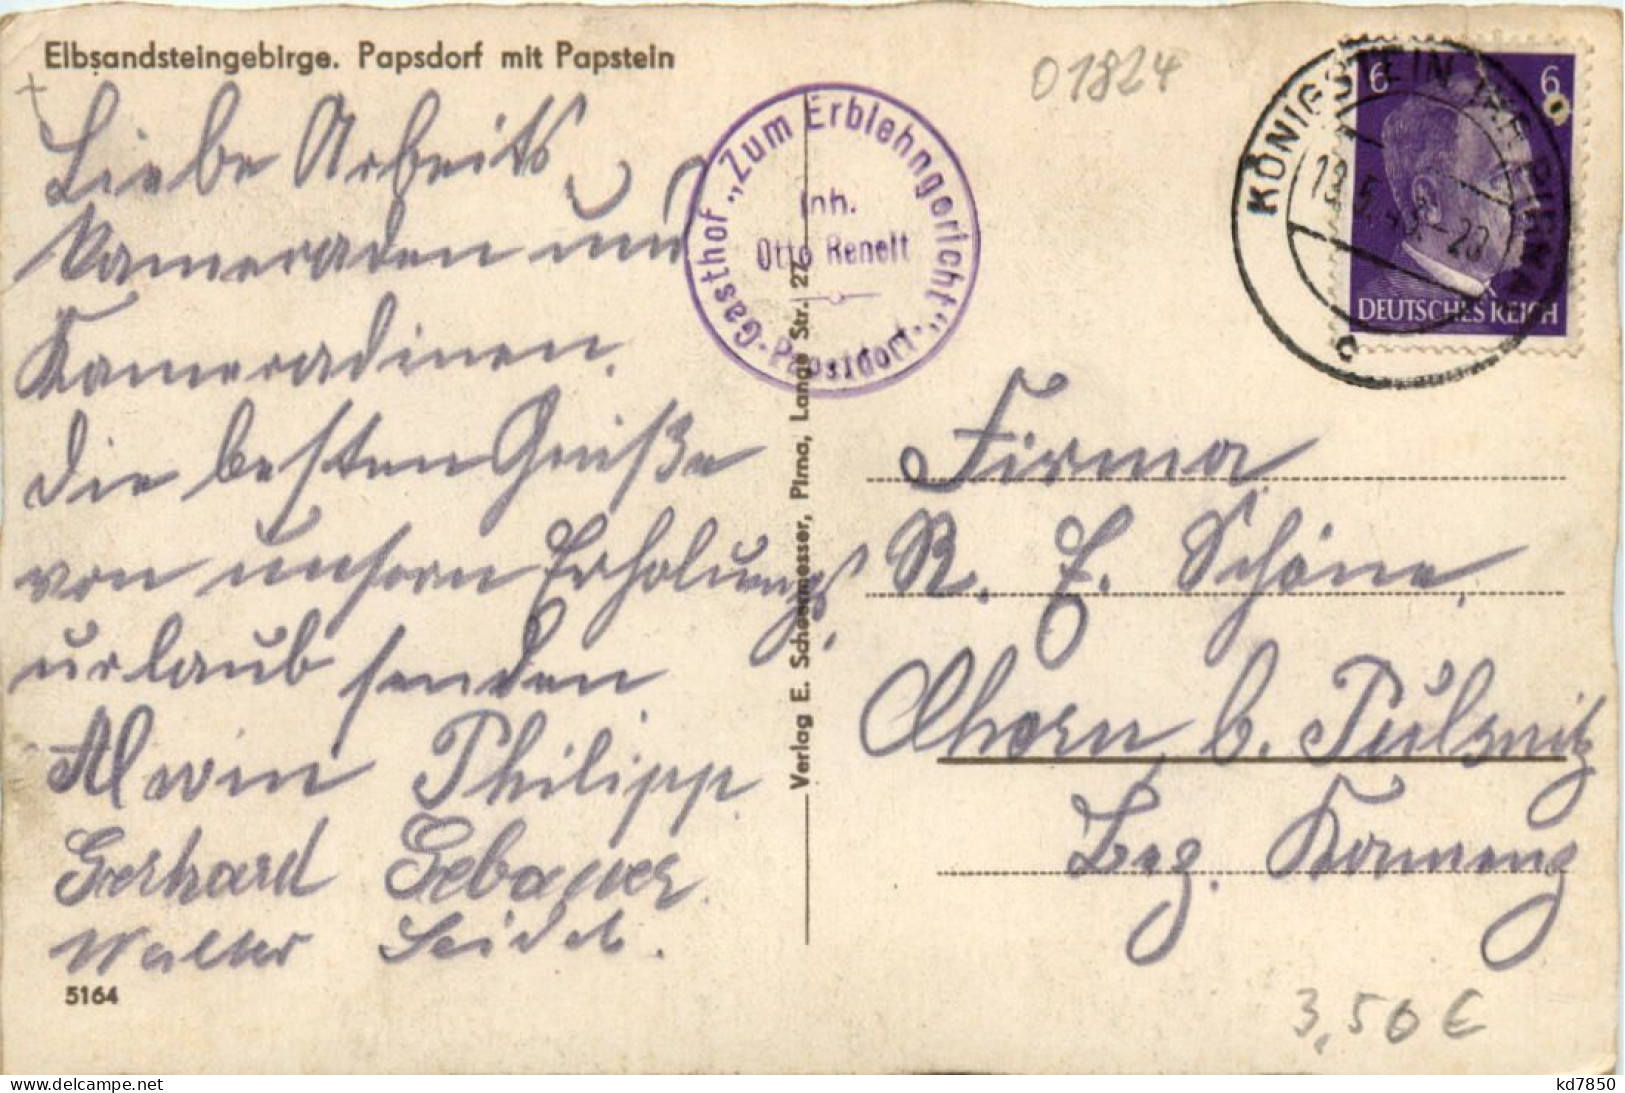 Elbsandsteingebirge. Papsdorf mit Papstein
01824
Liebe Arbeits
Kameraden und
Kameradinen.
die besten Grüße
von unsern Erholungs
urlaub senden
Alwin Philipp
Gerhard Gebauer
Walter Seidel.
5164
Gasthof „Zum Erblehngericht“
Inh.
Otto Renelt
Papstdorf
Verlag E. Scheermesser, Pirna, Lange Str. 27
KÖNIGSTEIN PIRNA
5.43.-20
c
6 6
DEUTSCHES REICH
Firma
R. F. Schöne,
Ohorn b. Pulsnitz
Bez. Kamenz
3,50 €
www.delcampe.net
kd7850